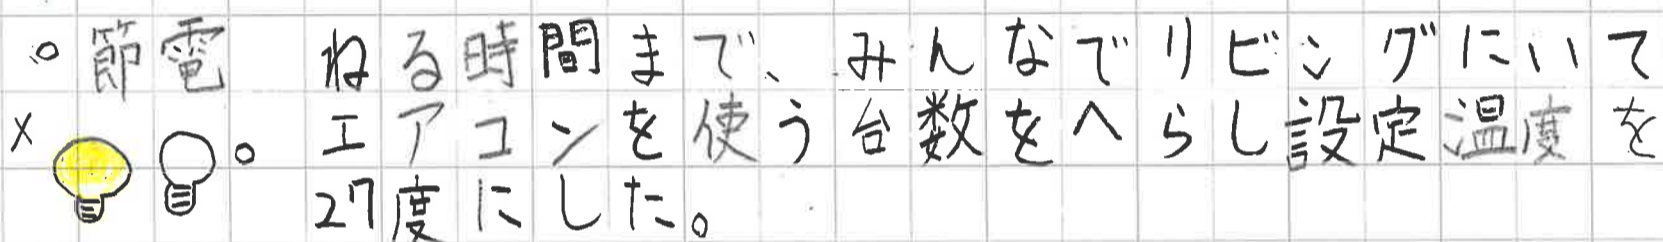 ○節電 ねる時間まで、みんなでリビングにいて
× ○ エアコンを使う台数をへらし設定温度を
27度にした。